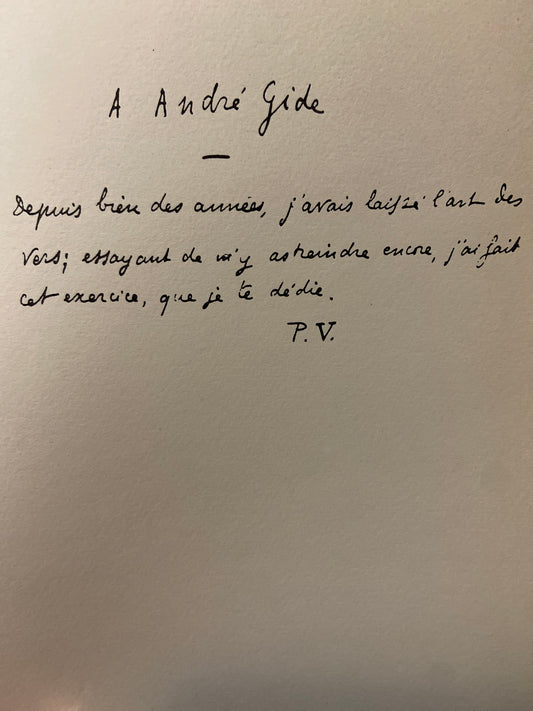 A André Gide
—
Depuis bien des années, j'avais laissé l'art des
vers; essayant de m'y astreindre encore, j'ai fait
cet exercice, que je te dédie.
P.V.